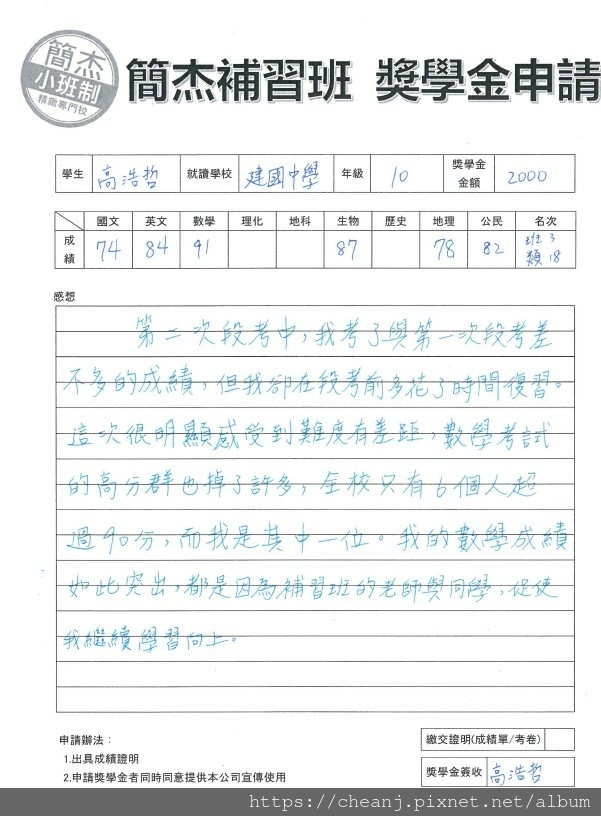 簡杰
小班制
精緻專門校
簡杰補習班 獎學金申請
學生 高浩哲 就讀學校 建國中學 年級 10 獎學金金額 2000
國文 英文 數學 理化 地科 生物 歷史 地理 公民 名次
成績 74 84 91 87 78 82 班3 類18
感想
第二次段考中，我考了與第一次段考差
不多的成績，但我卻在段考前多花了時間復習。
這次很明顯感受到難度有差距，數學考試
的高分群也掉了許多，全校只有6個人超
過90分，而我是其中一位。我的數學成績
如此突出，都是因為補習班的老師與同學，促使
我繼續學習向上。
申請辦法：
1.出具成績證明
2.申請獎學金者同時同意提供本公司宣傳使用
繳交證明(成績單/考卷)
獎學金簽收 高浩哲
https://cheanj.pixnet.net/album